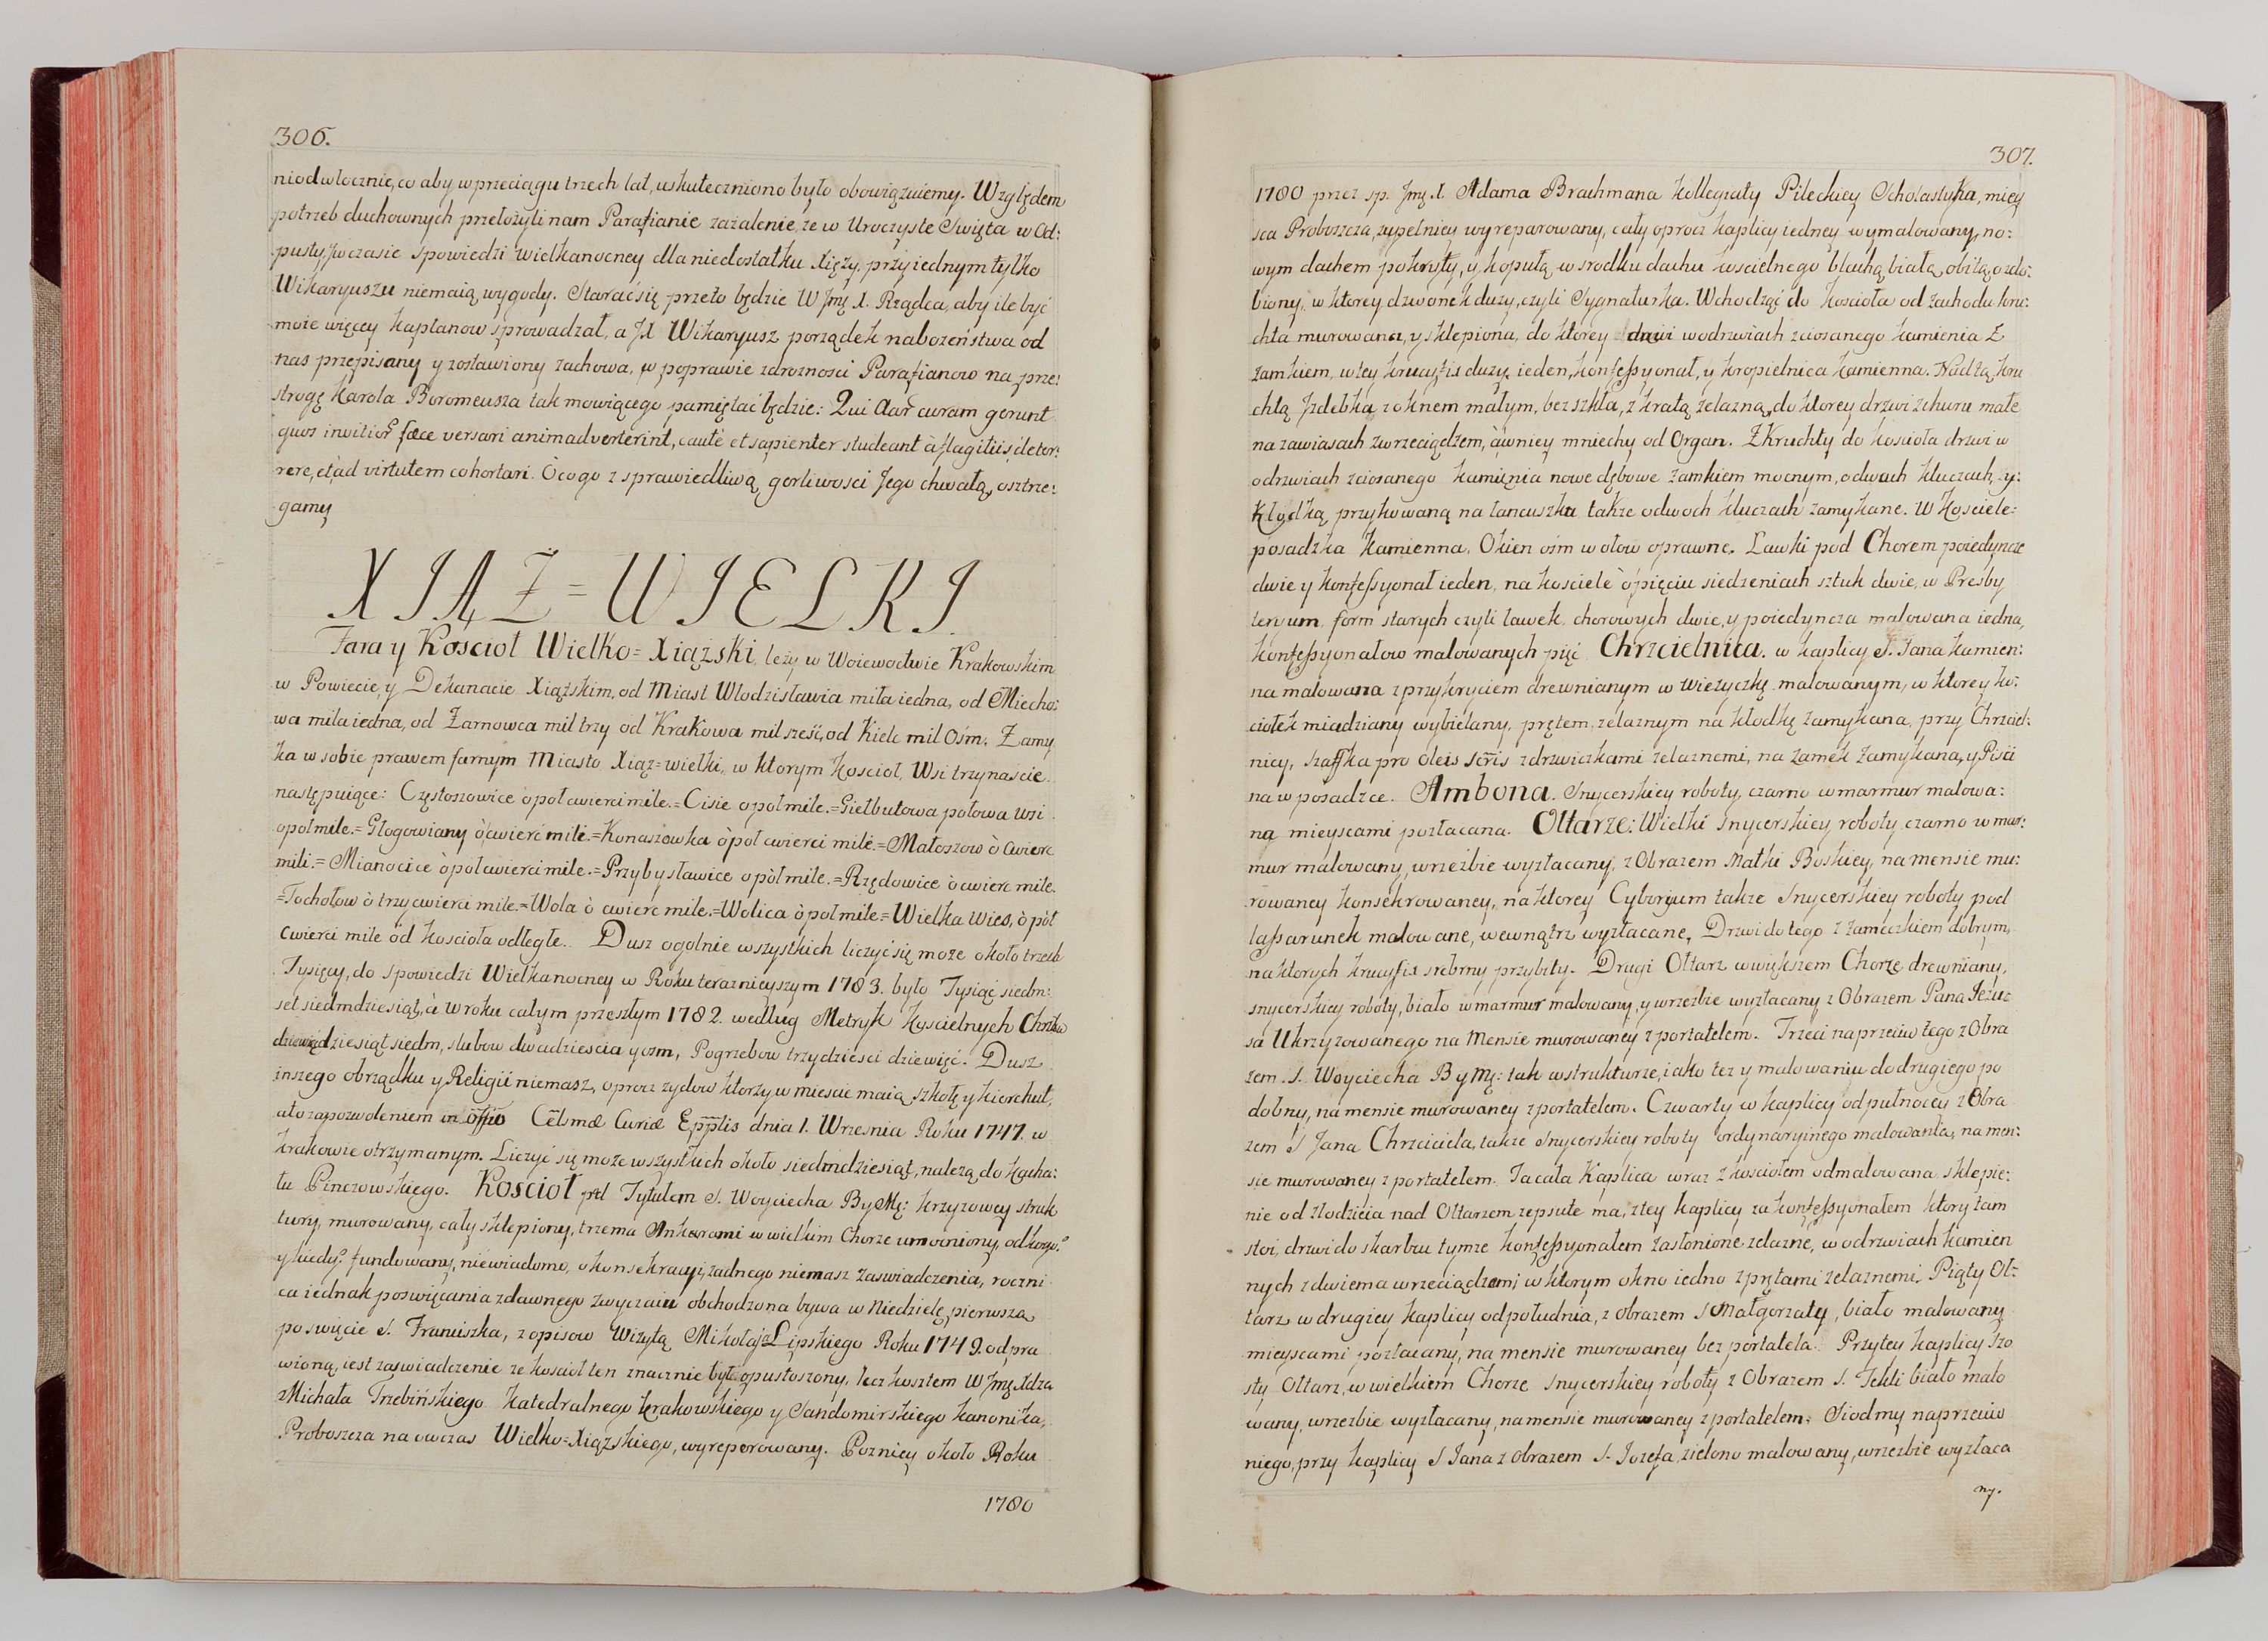 306.
niodwłocznie, co aby w przeciągu trzech lat, uskuteczniono było obowiązuiemy. Względem
potrzeb duchownych przełożyli nam Parafianie zażalenie, ze w Uroczyste Swięta w Od:
pusty, y w czasie spowiedzi wielkanocney dla niedostatku Xięży, przy iednym tylko
Wikaryuszu niemaią wygody. Starać się przeto będzie W Jmę X. Rządca, aby ile być
może więcey kapłanow sprowadzał, a JX Wikaryusz porządek nabożeństwa od
nas przepisany y zostawiony zachowa, w poprawie zdrożnosci Parafianow na prze:
strogę Karola Boromeusza tak mowiącego pamiętać będzie: Qui Aãr curam gerunt
quos in vitior fæce versari animadverterint, cautè et sapienter studeant à flagitiis deter:
rere, et ad virtutem cohortari. Òco go z sprawiedliwą gorliwosci Jego chwałą, osztrze:
gamy
XIĄŻ = WIELKI.
Fara y Kosciol Wielko = Xiążski, leży w Woiewodtwie Krakowskim
w Powiecie, y Dekanacie Xiążskim, od Miast Włodzisławia mila iedna, od Miecho:
wa mila iedna, od Żarnowca mil trzy od Krakowa mil sześć, od Kielc mil Ośm. Zamy
ka w sobie prawem farnym Miasto Xiąz=wielki, w ktorym kosciol, Wsi trzynascie
następuiące: Częstoszowice o poł cwierci mile.= Cisie o poł mile.= Giełbutowa połowa wsi
o poł mile.= Głogowiany ò cwierć mile.= Konaszowka ò poł cwierci mile.= Małoszow ò cwierć
mili.= Mianocice ò poł cwierci mile.= Przybysławice o pòł mile.= Rzędowice ò cwierć mile.
= Tochołow ò trzy cwierci mile.= Wola ò cwierć mile.= Wolica ò poł mile.= Wielka wies, ò pòł
cwierci mile od koscioła odległe. Dusz ogolnie wszystkich liczyć się może około trzech
Tysięcy, do spowiedzi Wielkanocney w Roku teraznieyszym 1783. było Tysiąc siedm:
set siedmdziesiąt, à w roku całym przeszłym 1782. według Metryk Koscielnych Chrztow
dziewiędziesiąt siedm, slubow dwadziescia y osm, Pogrzebow trzydziesci dziewięć. Dusz
inszego obrządku y Religii niemasz, oprocz zydow ktorzy w miescie maią szkołę y kierchut,
a to za pozwoleniem in offio Cẽlsmæ Curiæ Epptis dnia 1. Wrzesnia Roku 1747. w
krakowie otrzymanym. Liczyć się może wszystkich około siedmdziesiąt, należą do Kacha:
tu Pinczowskiego. Kosciol pod Tytułem S. Woyciecha By Mę: krzyżowey struk
tury, murowany, cały sklepiony, trzema Ankarami w wielkim Chorze umocniony, od kogo?
y kiedy? fundowany, niewiadomo, o konsekracyi, żadnego niemasz zaswiadczenia, roczni
ca iednak poswięcania zdawnego zwyczaiu obchodzona bywa w Niedzielę, pierwszą
po swięcie S. Franciszka, z opisow Wizytą Mikołaja Lipskiego Roku 1749. odpra
wioną, iest zaswiadczenie ze kosciol ten znacznie był opustoszony, lecz kosztem W Jmę Xdza
Michała Trzebińskiego Katedralnego Krakowskiego y Sandomirskiego Kanonika,
Proboszcza na owczas Wielko=Xiążskiego, wyreperowany. Pozniey około Roku
1780
307.
1780 przez sp. Jmę X. Adama Brachmana Kollegiaty Pileckiey Scholastyka, miey
sca Proboszcza, zupełniey wyreparowany, cały oprocz kaplicy iedney wymalowany, no:
wym dachem pokryty, y kopułą w srodku dachu koscielnego blachą białą, obitą, ozdo:
biony, w ktorey dzwonek duzy, czyli Sygnaturka. Wchodząć do koscioła od zachodu kru:
chta murowana, y sklepiona, do ktorey drzwi w odrzwiach zciosanego kamienia Z
zamkiem, w tey krucyfix duzy, ieden, konfessyonał, y kropielnica kamienna. Nad tą kru
chtą Jzdebka z oknem małym, bez szkła, z kratą żelazną, do ktorey drzwi zchuru małe
na zawiasach z wrzeciądzem, à w niey mniechy od Organ. Z Kruchty do koscioła drzwi w
odrzwiach zciosanego kamienia nowe dębowe zamkiem mocnym, o dwuch kluczach, y:
Kłodką przykowaną na łancuszku takze o dwoch kluczach zamykane. W Kosciele:
posadzka kamienna, Okien ośm w ołow oprawne. Lawki pod Chorem poiedyncze
dwie y konfessyonał ieden, na kosciele ò pięciu siedzeniach sztuk dwie, w Presby
teryum form starych czyli ławek chorowych dwie, y poiedyncza malowana iedna,
konfessyonałow malowanych pięć Chrzcielnica. w kaplicy S. Jana kamien:
na malowana z przykryciem drewnianym w wieżyczkę malowanym, w ktorey ko:
ciołek miedziany wybielany, prętem żelaznym na kłodkę zamykana, przy Chrzciel:
nicy, szaffka pro oleis scr̃is z drzwiczkami żelaznemi, na zamek zamykana, y Pisci
na w posadzce. Ambona. Snycerskiey roboty, czarno w marmur malowa:
ną mieyscami pozłacana. Ołtarze: Wielki snycerskiey roboty czarno w mar:
mur malowany, w rzeźbie wyzłacany, z Obrazem Matki Boskiey, na mensie mu:
rowaney konsekrowaney, na ktorey Cyboryum takze Snycerskiey roboty pod
lassarunek malowane, wewnątrz wyzłacane, Drzwi do tego z zameczkiem dobrym,
na ktorych krucyfix srebrny przybity. Drugi Ołtarz w większem Chorze drewniany,
snycerskiey roboty, biało w marmur malowany, y w rzezbie wyzłacany z Obrazem Pana Jezu:
sa Ukrzyzowanego na Mensie murowaney z portatelem. Trzeci naprzeciw tego z Obra
zem S. Woyciecha By Mę: tak w strukturze, iako tez y malowaniu do drugiego po
dobny, na mensie murowaney z portatelem. Czwarty w kaplicy od pułnocy z Obra
zem S Jana Chrzciciela, takze snycerskiey roboty ordynaryinego malowania, na men:
sie murowaney z portatelem. Ta cała Kaplica wraz z kosciołem odmalowana sklepie:
nie od złodzieia nad Ołtarzem zepsute ma, z tey kaplicy za konfessyonałem ktory tam
stoi, drzwi do skarbcu tymze konfessyonałem zasłonione zelazne, w odrzwiach kamien
nych z dwiema wrzeciądzami, w ktorym okno iedno z prętami zelaznemi, Piąty Oł:
tarz w drugiey kaplicy od południa, z obrazem S Małgorzaty, biało malowany
mieyscami pozłacany, na mensie murowaney bez portatela. Przy tey kaplicy Szo
sty Ołtarz, w wielkiem Chorze snycerskiey roboty z Obrazem S. Tekli biało malo
wany, w rzezbie wyzłacany, na mensie murowaney z portatelem. Siodmy naprzeciw
niego, przy kaplicy S Jana z obrazem S. Jozefa, zielono malowany, w rzezbie wyzłaca
ny.